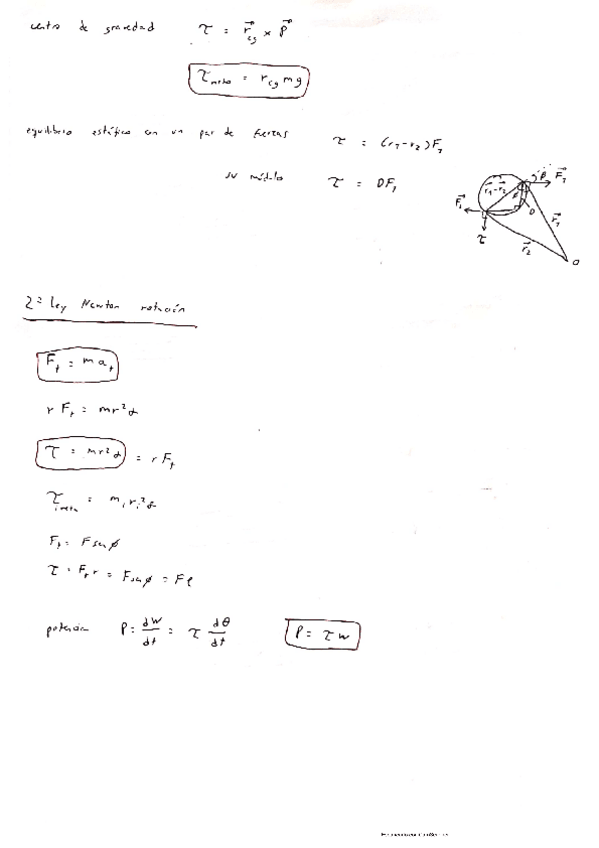 centro de gravedad τ = r⃗cg × P⃗
τneto = rcg mg
equilibrio estático con un par de fuerzas τ = (r₁-r₂)F₁
su módulo τ = DF₁
F⃗₁ r⃗₁-r⃗₂ β F⃗₂ D r⃗₁ τ r⃗₂ O
2ª ley Newton rotación
Fₜ = maₜ
r Fₜ = mr²α
τ = mr²α = r Fₜ
= mᵢrᵢ²α
Fₜ = F sen ϕ
τ = Fₜ r = F sen ϕ = Fℓ
potencia P = dW/dt = τ dθ/dt P = τ w